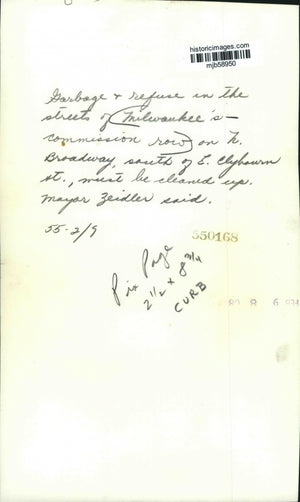 historicimages.com
mjb58950
Garbage + refuse in the
streets of Milwaukee's -
commission row on N.
Broadway, south of E. Clybourn
st., must be cleaned up.
Mayor Zeidler said.
55-2/9
350168
Pix Page
2 1/2 x 8 3/4
CURB